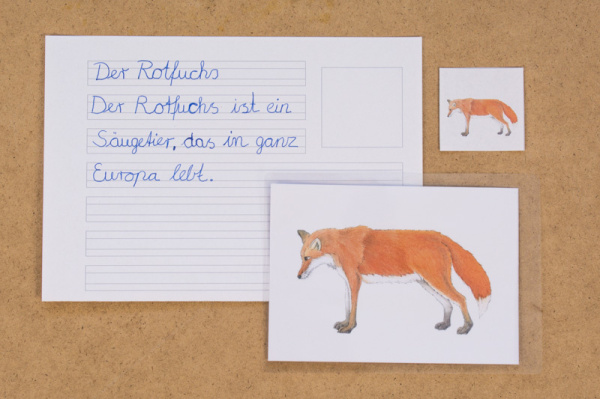 Der Rotfuchs
Der Rotfuchs ist ein
Säugetier, das in ganz
Europa lebt.